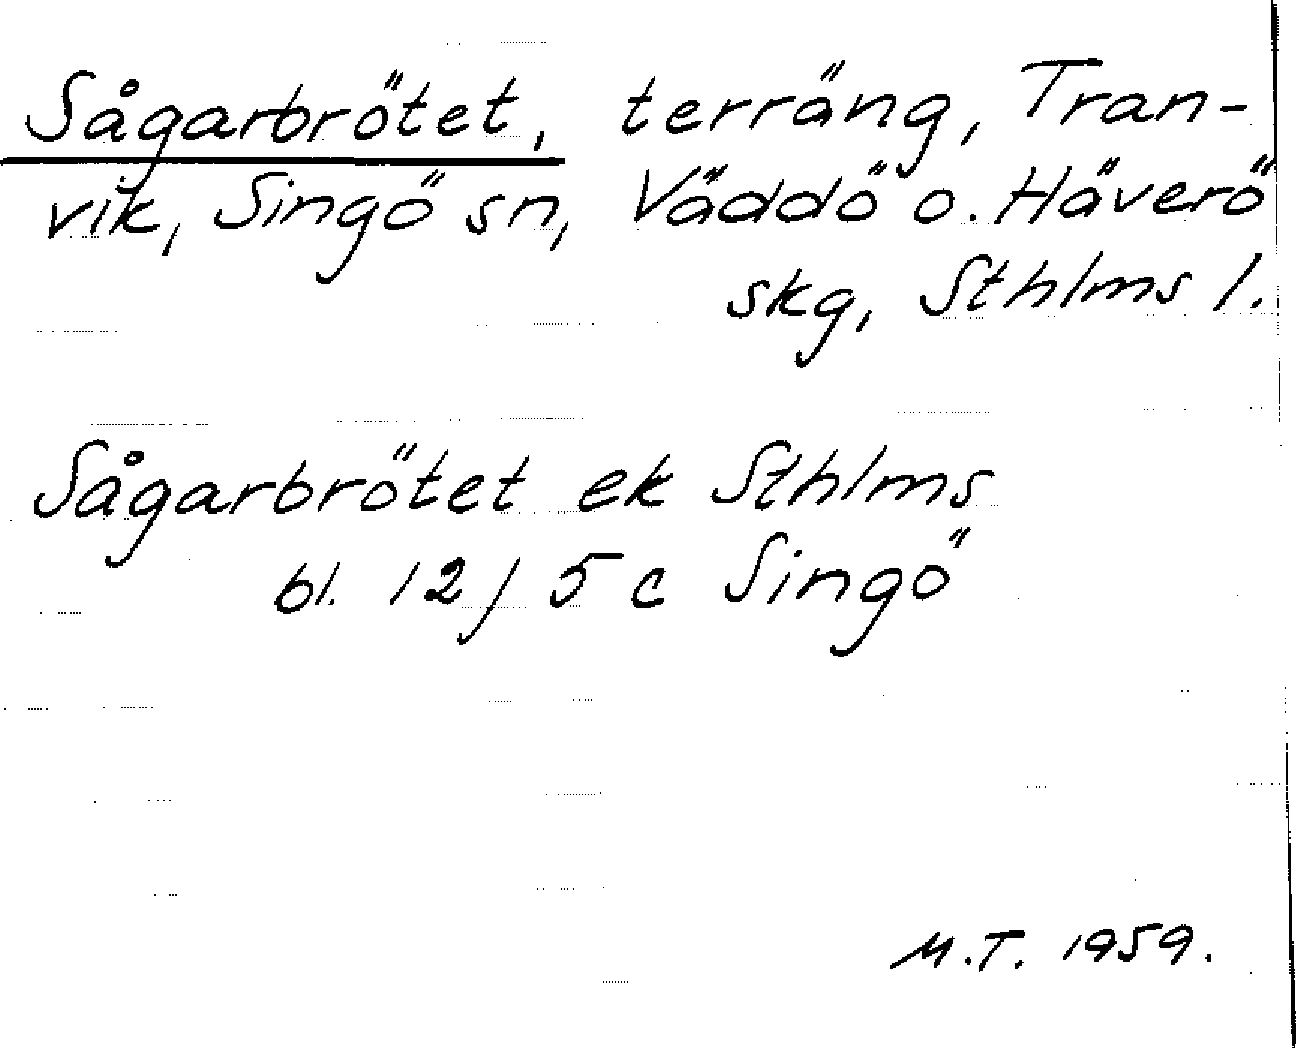 Sågarbrötet, terräng, Tran-
vik, Singö sn, Väddö o. Häverö
skg, Sthlms l.
Sågarbrötet ek Sthlms
bl. 12 / 5 c Singö
M.T. 1959.